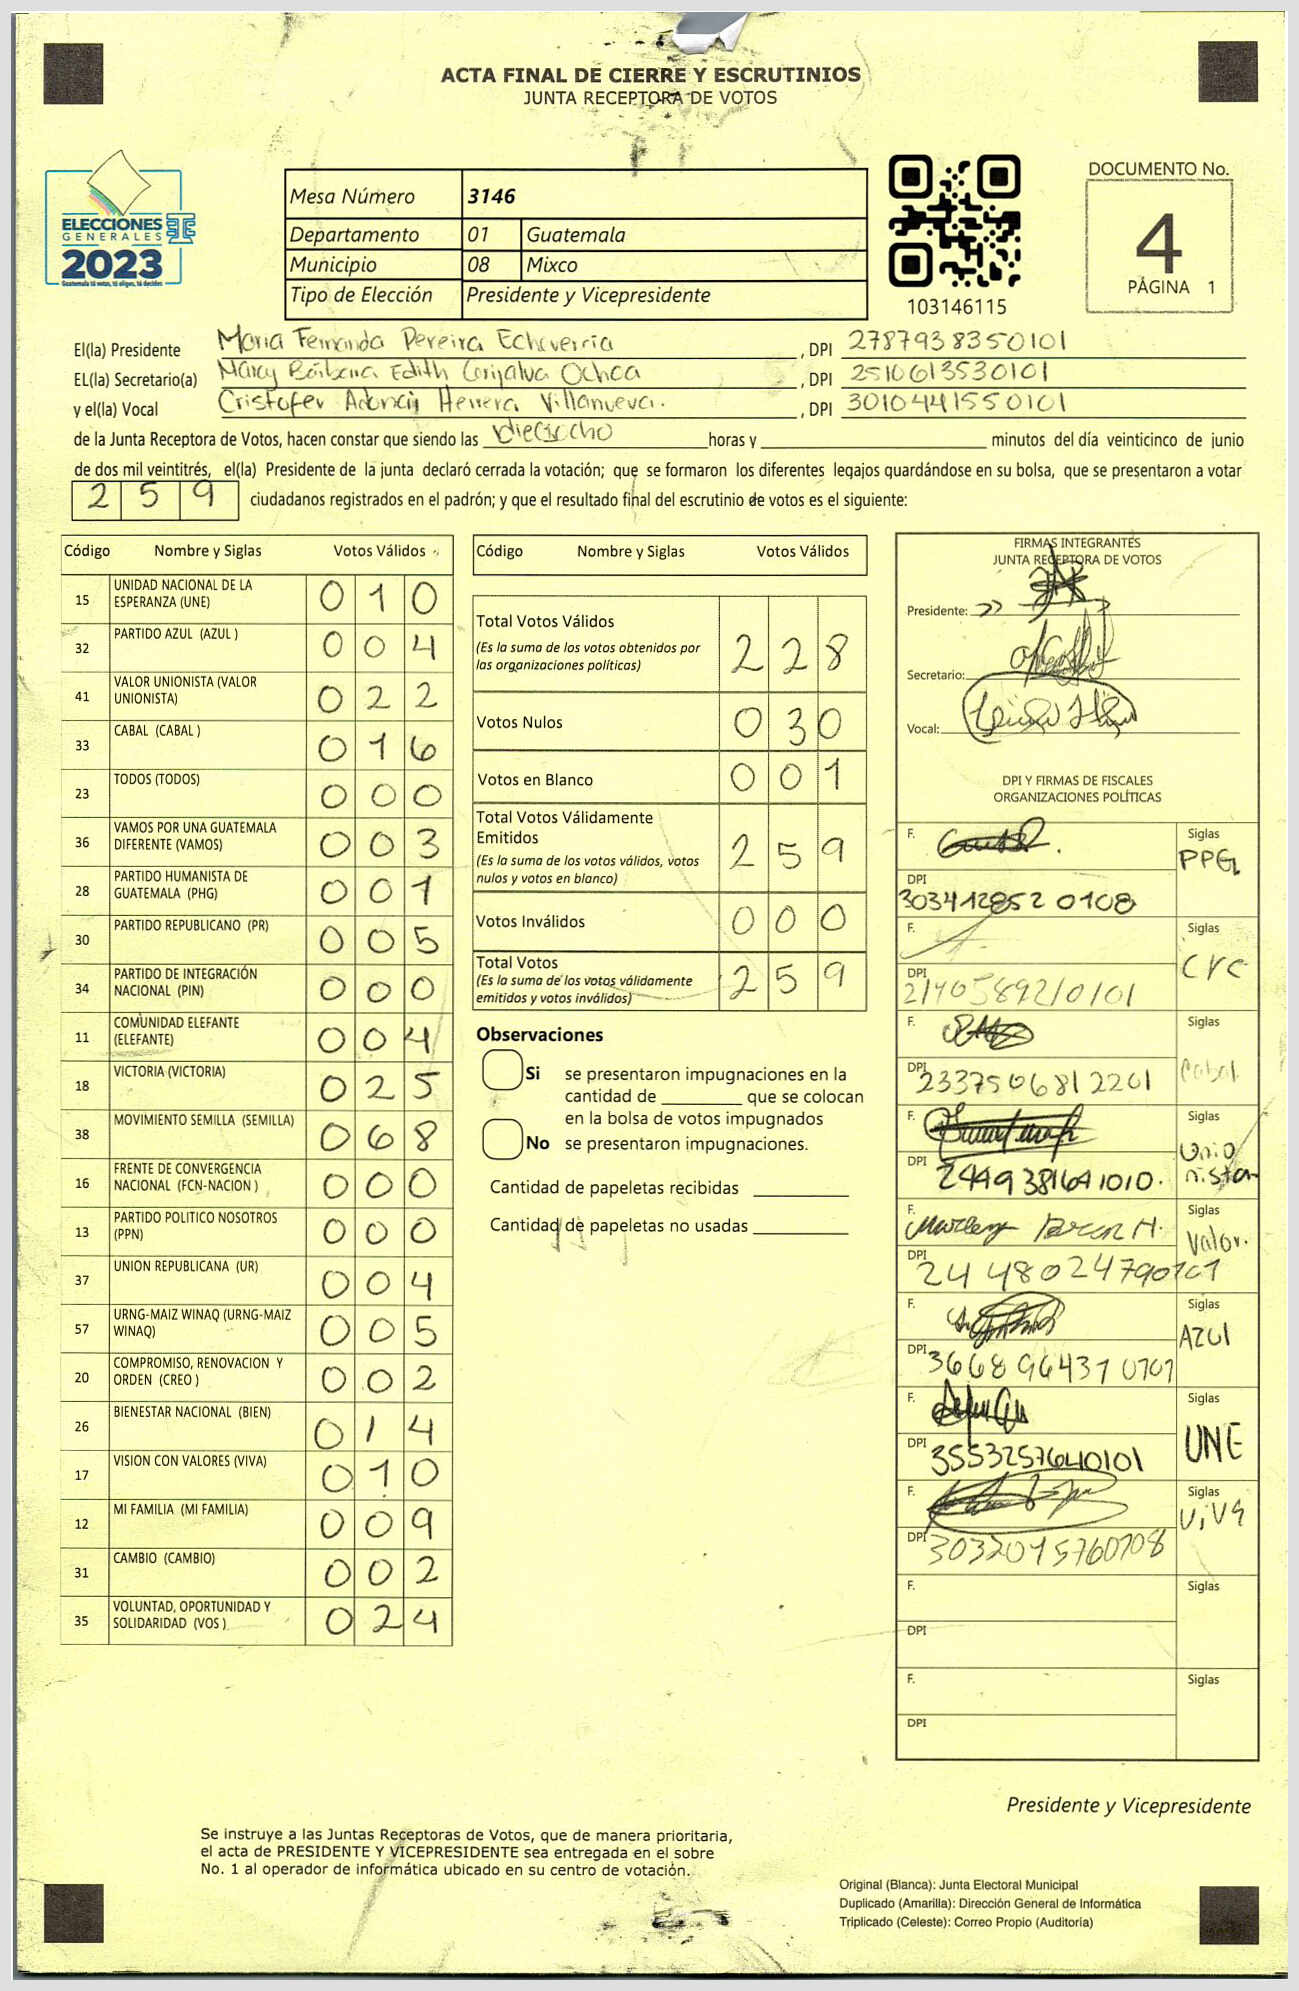 ACTA FINAL DE CIERRE Y ESCRUTINIOS
JUNTA RECEPTORA DE VOTOS
ELECCIONES
GENERALES
2023
Guatemala tú votas, tú eliges, tú decides
Mesa Número 3146
Departamento 01 Guatemala
Municipio 08 Mixco
Tipo de Elección Presidente y Vicepresidente
103146115
DOCUMENTO No.
4
PÁGINA 1
El(la) Presidente Maria Fernanda Pereira Echeverria , DPI 2787938350101
EL(la) Secretario(a) Marcy Bárbara Edith Grijalva Ochoa , DPI 2510613530101
y el(la) Vocal Cristofer Adonay Herrera Villanueva. , DPI 3010441550101
de la Junta Receptora de Votos, hacen constar que siendo las dieciocho horas y minutos del día veinticinco de junio
de dos mil veintitrés, el(la) Presidente de la junta declaró cerrada la votación; que se formaron los diferentes legajos guardándose en su bolsa, que se presentaron a votar
259 ciudadanos registrados en el padrón; y que el resultado final del escrutinio de votos es el siguiente:
Código Nombre y Siglas Votos Válidos
15 UNIDAD NACIONAL DE LA ESPERANZA (UNE) 010
32 PARTIDO AZUL (AZUL ) 004
41 VALOR UNIONISTA (VALOR UNIONISTA) 022
33 CABAL (CABAL ) 016
23 TODOS (TODOS) 000
36 VAMOS POR UNA GUATEMALA DIFERENTE (VAMOS) 003
28 PARTIDO HUMANISTA DE GUATEMALA (PHG) 001
30 PARTIDO REPUBLICANO (PR) 005
34 PARTIDO DE INTEGRACIÓN NACIONAL (PIN) 000
11 COMUNIDAD ELEFANTE (ELEFANTE) 004
18 VICTORIA (VICTORIA) 025
38 MOVIMIENTO SEMILLA (SEMILLA) 068
16 FRENTE DE CONVERGENCIA NACIONAL (FCN-NACION ) 000
13 PARTIDO POLITICO NOSOTROS (PPN) 000
37 UNION REPUBLICANA (UR) 004
57 URNG-MAIZ WINAQ (URNG-MAIZ WINAQ) 005
20 COMPROMISO, RENOVACION Y ORDEN (CREO ) 002
26 BIENESTAR NACIONAL (BIEN) 014
17 VISION CON VALORES (VIVA) 010
12 MI FAMILIA (MI FAMILIA) 009
31 CAMBIO (CAMBIO) 002
35 VOLUNTAD, OPORTUNIDAD Y SOLIDARIDAD (VOS ) 024
Código Nombre y Siglas Votos Válidos
Total Votos Válidos 228
(Es la suma de los votos obtenidos por
las organizaciones políticas)
Votos Nulos 030
Votos en Blanco 001
Total Votos Válidamente
Emitidos 259
(Es la suma de los votos válidos, votos
nulos y votos en blanco)
Votos Inválidos 000
Total Votos 259
(Es la suma de los votos válidamente
emitidos y votos inválidos)
Observaciones
Si se presentaron impugnaciones en la
cantidad de que se colocan
en la bolsa de votos impugnados
No se presentaron impugnaciones.
Cantidad de papeletas recibidas
Cantidad de papeletas no usadas
FIRMAS INTEGRANTES
JUNTA RECEPTORA DE VOTOS
Presidente:
Secretario:
Vocal:
DPI Y FIRMAS DE FISCALES
ORGANIZACIONES POLÍTICAS
F. Siglas PPG
DPI 3034128520108
F. Siglas CVC
DPI 2140589210101
F. Siglas Cabal
DPI 2337506812201
F. Siglas Unionistan
DPI 2449381641010.
F. Siglas Valor.
DPI 2448024790101
F. Siglas AZUl
DPI 3668964370101
F. Siglas UNE
DPI 3553257640101
F. Siglas ViVa
DPI 3032015760108
F. Siglas
DPI
F. Siglas
DPI
Presidente y Vicepresidente
Se instruye a las Juntas Receptoras de Votos, que de manera prioritaria,
el acta de PRESIDENTE Y VICEPRESIDENTE sea entregada en el sobre
No. 1 al operador de informática ubicado en su centro de votación.
Original (Blanca): Junta Electoral Municipal
Duplicado (Amarilla): Dirección General de Informática
Triplicado (Celeste): Correo Propio (Auditoría)